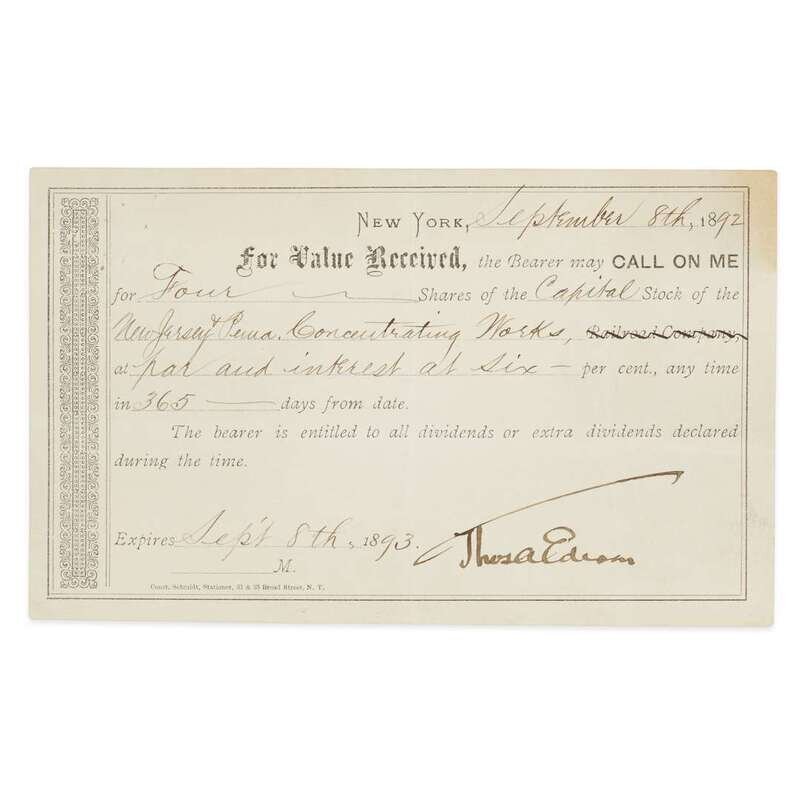 NEW YORK, September 8th, 1892
For Value Received, the Bearer may CALL ON ME
for Four Shares of the Capital Stock of the
New Jersey & Penna. Concentrating Works, Railroad Company,
at par and interest at six — per cent., any time
in 365 — days from date.
The bearer is entitled to all dividends or extra dividends declared
during the time.
Expires Sep't 8th, 1893.
Thos A Edison
M.
Conr. Schmidt, Stationer, 33 & 35 Broad Street, N. Y.